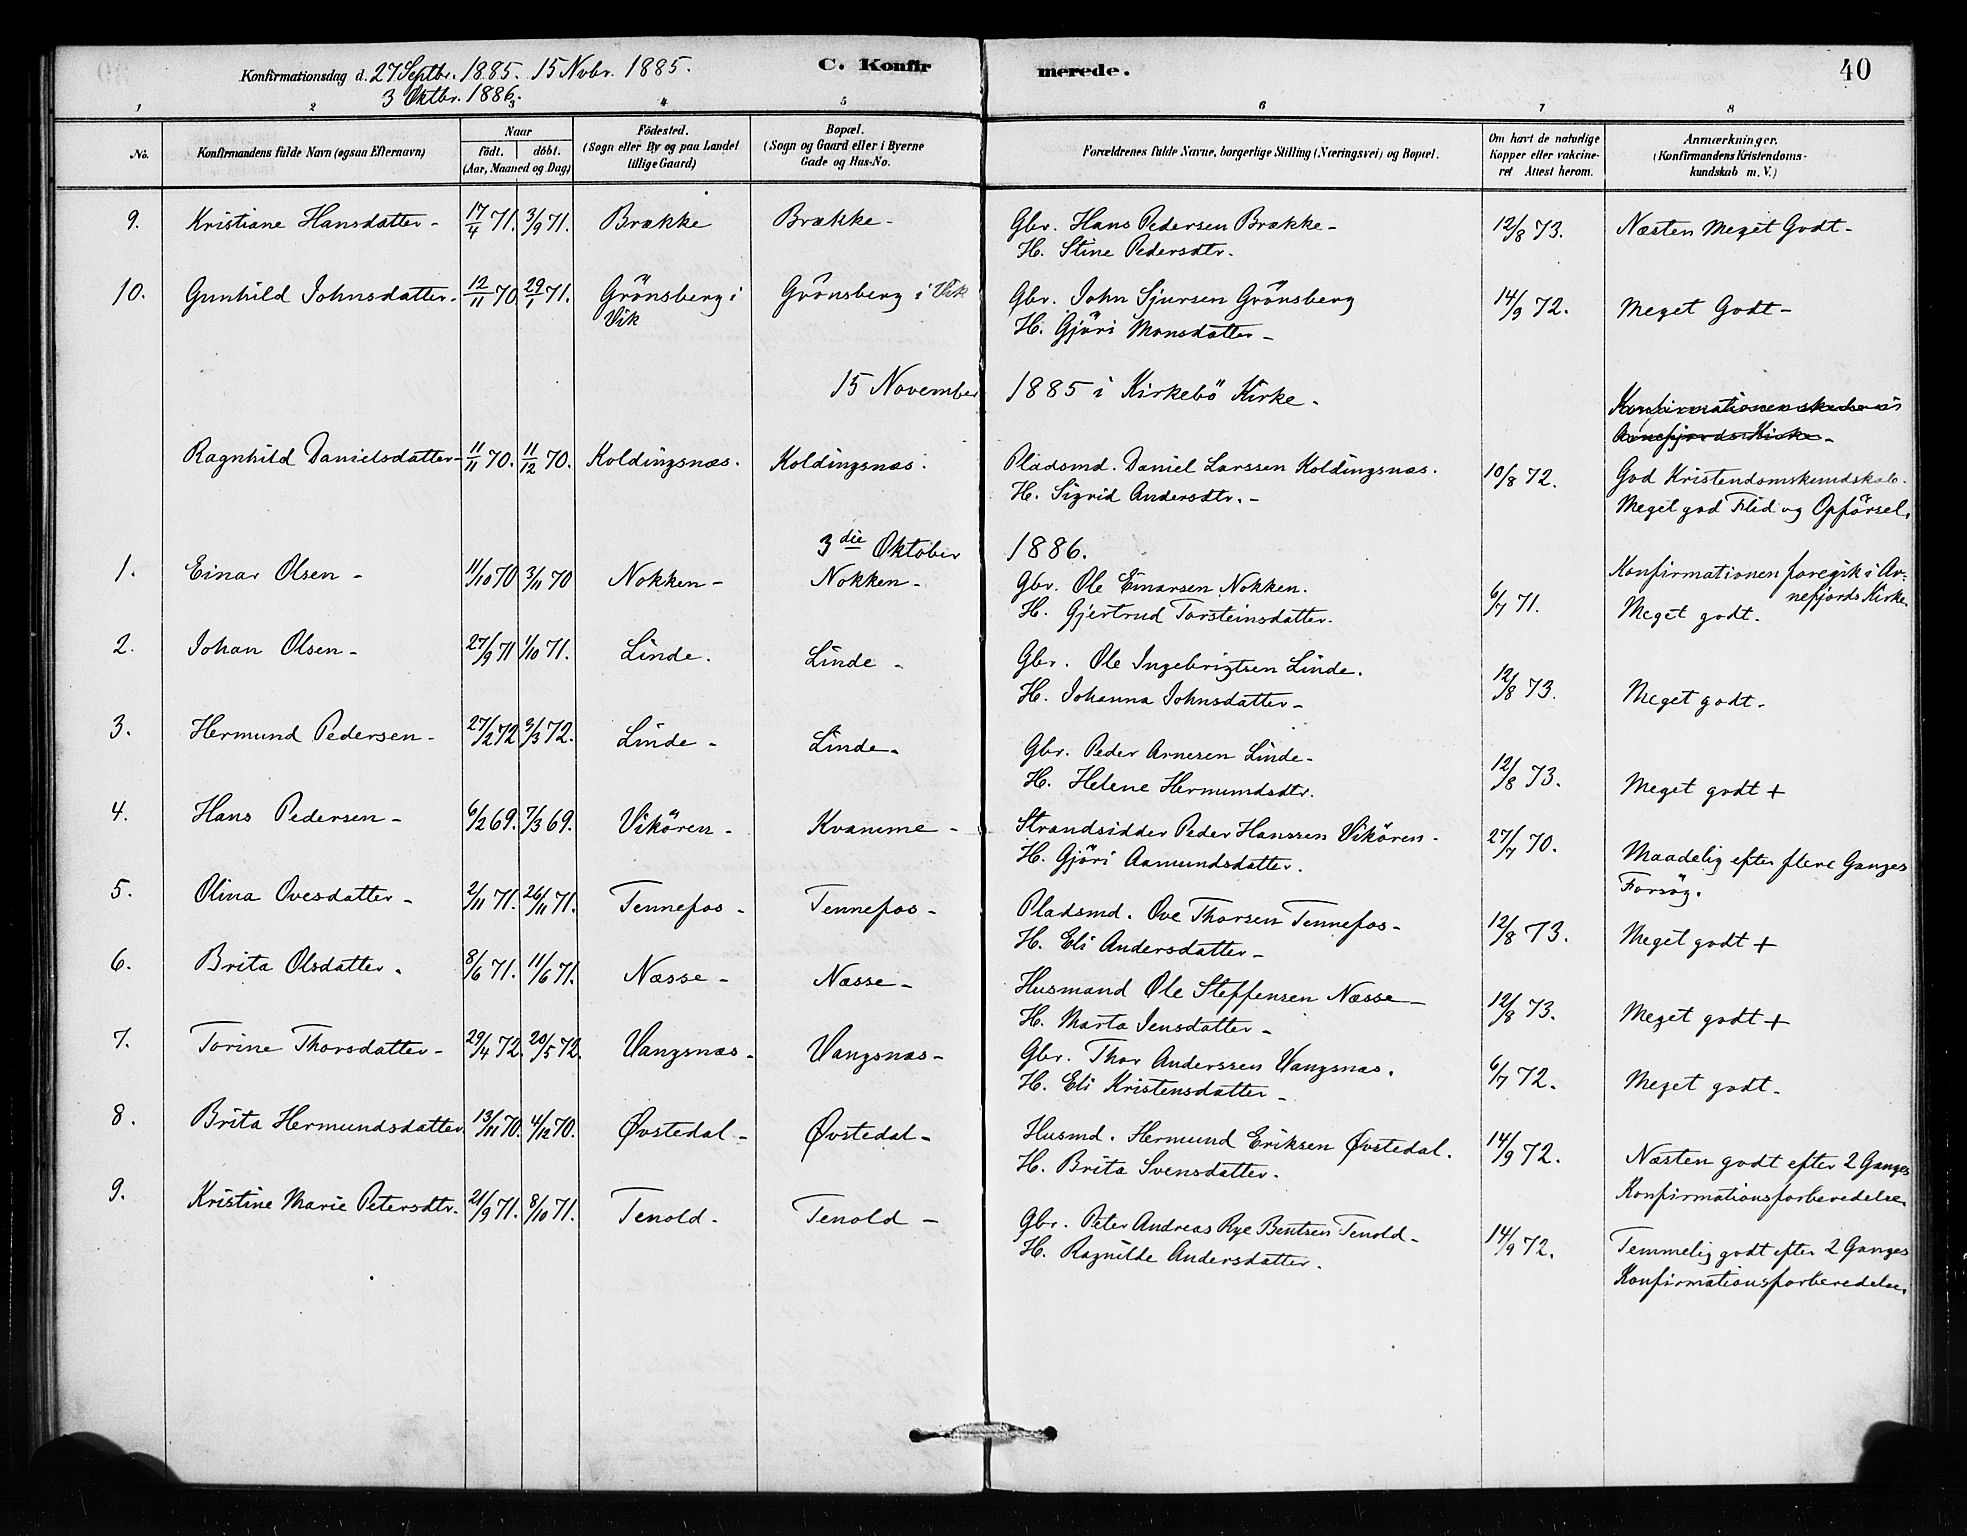 Konfirmationsdag d. 27 Septbr. 1885. 15 Novbr. 1885. C. Konfirmerede. 40
3 Oktbr. 1886.
1 2 3 4 5 6 7 8
No. Konfirmandens fulde Navn (ogsaa Efternavn) Naar födt. döbt. (Aar, Maaned og Dag) Födested. (Sogn eller By og paa Landet tillige Gaard) Bopæl. (Sogn og Gaard eller i Byerne Gade og Hus-No. Forældrenes fulde Navne, borgerlige Stilling (Næringsvei) og Bopæl. Om havt de naturlige Kopper eller vakcineret Attest herom. Anmærkninger. (Konfirmandens Kristendomskundskab m. V.)
9. Kristiane Hansdatter - 17/4 71. 3/9 71. Brække Brække - Gbr. Hans Pedersen Brække - 12/8 73. Næsten Meget Godt -
H. Stine Pedersdtr.
10. Gunhild Johnsdatter - 12/11 70 29/1 71. Grönsberg i Vik Grönsberg i Vik Gbr. John Sjursen Grönsberg 14/9 72. Meget Godt -
H. Gjöri Monsdatter -
15 November 1885 i Kirkebö Kirke -
Konfirmationen skede i
Arnefjords Kirke -
Ragnhild Danielsdatter - 11/11 70. 11/12 70. Koldingsnæs. Koldingsnæs. Pladsmd. Daniel Larssen Koldingsnæs. 10/8 72. God Kristendomskundskab.
H. Sigrid Andersdtr. - Meget god Flid og Opförsel.
3die Oktober 1886.
Konfirmationen foregik i Arnefjords Kirke
1. Einar Olsen - 11/10 70 3/11 70 Nokken - Nokken - Gbr. Ole Einarsen Nokken. 6/7 71. Meget godt.
H. Gjertrud Torsteinsdatter.
2. Johan Olsen - 27/9 71 1/10 71. Linde. Linde - Gbr. Ole Ingebrigtsen Linde. 12/8 73. Meget godt -
H. Johanna Johnsdatter -
3. Hermund Pedersen - 27/2 72 3/3 72. Linde - Linde - Gbr. Peder Arnesen Linde - 12/8 73. Meget godt +
H. Helene Hermundsdtr.
4. Hans Pedersen - 6/2 69. 7/3 69. Vikören - Kvamme - Strandsidder Peder Hanssen Vikören - 27/7 70. Maadelig efter flere Ganges
H. Gjöri Aamundsdatter. Forsøg.
5. Olina Ovesdatter - 2/11 71. 26/11 71. Tennefos - Tennefos - Pladsmd. Ove Thorsen Tennefos - 12/8 73. Meget godt +
H. Eli Andersdatter -
6. Brita Olsdatter. 8/6 71. 11/6 71. Næsse - Næsse - Husmand Ole Steffensen Næsse - 12/8 73. Meget godt +
H. Marta Jensdatter -
7. Torine Thorsdatter - 29/4 72. 20/5 72. Vangsnæs - Vangsnæs - Gbr. Thor Anderssen Vangsnæs. 6/7 72. Meget godt -
H. Eli Kristensdatter -
8. Brita Hermundsdatter 13/11 70. 4/12 70. Øvstedal - Øvstedal - Husmd. Hermund Eriksen Øvstedal. 14/9 72. Næsten godt efter 2 Ganges
H. Brita Svensdatter. Konfirmationsforberedelse
9. Kristine Marie Petersdtr. 21/9 71. 8/10 71. Tenold - Tenold - Gbr. Peter Andreas Rye Bentsen Tenold - 14/9 72. Temmelig godt efter 2 Ganges
H. Ragnilde Andersdatter. Konfirmationsforberedelse.